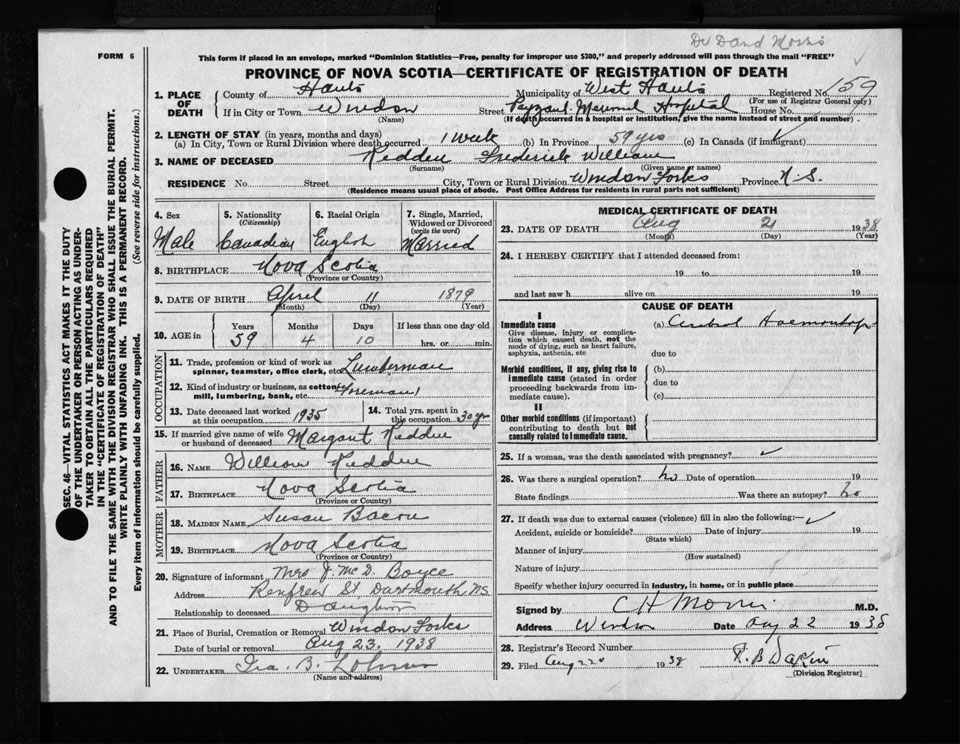 Dr David Morris
FORM 6
This form if placed in an envelope, marked "Dominion Statistics—Free, penalty for improper use $300," and properly addressed will pass through the mail "FREE"
PROVINCE OF NOVA SCOTIA—CERTIFICATE OF REGISTRATION OF DEATH
1. PLACE OF DEATH
County of Hants Municipality of West Hants Registered No. 159
(For use of Registrar General only)
If in City or Town Windsor Street Payzant Memorial Hospital House No.
(Name) (If death occurred in a hospital or institution, give the name instead of street and number)
2. LENGTH OF STAY (in years, months and days)
(a) In City, Town or Rural Division where death occurred 1 week (b) In Province 59 yrs (c) In Canada (if immigrant)
3. NAME OF DECEASED Redden Frederick William
(Surname) (Given name or names)
RESIDENCE No. Street City, Town or Rural Division Windsor Forks Province N.S.
(Residence means usual place of abode. Post Office Address for residents in rural parts not sufficient)
SEC. 46—VITAL STATISTICS ACT MAKES IT THE DUTY
OF THE UNDERTAKER OR PERSON ACTING AS UNDERTAKER
TO OBTAIN ALL THE PARTICULARS REQUIRED
IN THE "CERTIFICATE OF REGISTRATION OF DEATH"
AND TO FILE THE SAME WITH THE DIVISION REGISTRAR WHO SHALL ISSUE THE BURIAL PERMIT.
WRITE PLAINLY WITH UNFADING INK. THIS IS A PERMANENT RECORD.
Every item of information should be carefully supplied. (See reverse side for instructions.)
4. Sex Male
5. Nationality (Citizenship) Canadian
6. Racial Origin English
7. Single, Married, Widowed or Divorced (write the word) Married
8. BIRTHPLACE Nova Scotia
(Province or Country)
9. DATE OF BIRTH April 11 1879
(Month) (Day) (Year)
10. AGE in Years Months Days If less than one day old
59 4 10 hrs. or min.
OCCUPATION
11. Trade, profession or kind of work as
spinner, teamster, office clerk, etc. Lumberman
12. Kind of industry or business, as cotton
mill, lumbering, bank, etc. Foreman
13. Date deceased last worked at this occupation 1935
14. Total yrs. spent in this occupation 30 yrs
15. If married give name of wife or husband of deceased Margaret Redden
FATHER
16. NAME William Redden
17. BIRTHPLACE Nova Scotia
(Province or Country)
MOTHER
18. MAIDEN NAME Susan Bacon
19. BIRTHPLACE Nova Scotia
(Province or Country)
20. Signature of informant Mrs J. McD. Boyce
Address Renfrew St. Dartmouth N.S.
Relationship to deceased Daughter
21. Place of Burial, Cremation or Removal Windsor Forks
Date of burial or removal Aug 23. 1938
22. UNDERTAKER Ira. B.
(Name and address)
MEDICAL CERTIFICATE OF DEATH
23. DATE OF DEATH Aug 21 1938
(Month) (Day) (Year)
24. I HEREBY CERTIFY that I attended deceased from:
19 to 19
and last saw h alive on 19
CAUSE OF DEATH
I
Immediate cause (a) Cerebral Haemorrhage
Give disease, injury or complication
which caused death, not the
mode of dying, such as heart failure,
asphyxia, asthenia, etc due to
Morbid conditions, if any, giving rise to (b)
immediate cause (stated in order
proceeding backwards from immediate cause). due to
(c)
II
Other morbid conditions (if important)
contributing to death but not
causally related to immediate cause.
25. If a woman, was the death associated with pregnancy?
26. Was there a surgical operation? no Date of operation 19
State findings Was there an autopsy? no
27. If death was due to external causes (violence) fill in also the following:—
Accident, suicide or homicide? Date of injury 19
(State which)
Manner of injury
(How sustained)
Nature of injury
Specify whether injury occurred in industry, in home, or in public place
Signed by C H Morris M.D.
Address Windsor Date Aug 22 1938
28. Registrar's Record Number
29. Filed Aug 22 1938 R. B Dakin
(Division Registrar)